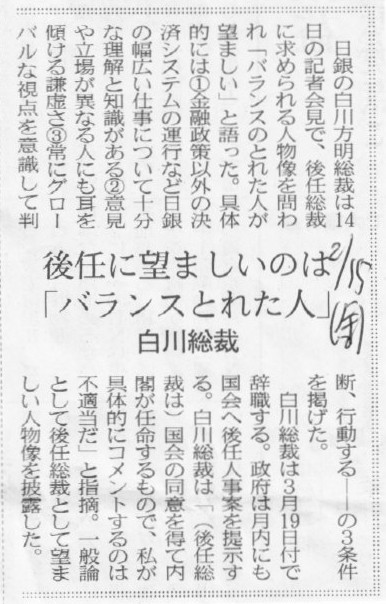 後任に望ましいのは
「バランスとれた人」
白川総裁
2/15
(金)
日銀の白川方明総裁は14
日の記者会見で、後任総裁
に求められる人物像を問わ
れ「バランスのとれた人が
望ましい」と語った。具体
的には①金融政策以外の決
済システムの運行など日銀
の幅広い仕事について十分
な理解と知識がある②意見
や立場が異なる人にも耳を
傾ける謙虚さ③常にグロー
バルな視点を意識して判
断、行動する――の3条件
を掲げた。
白川総裁は3月19日付で
辞職する。政府は月内にも
国会へ後任人事案を提示す
る。白川総裁は「(後任総
裁は)国会の同意を得て内
閣が任命するもので、私が
具体的にコメントするのは
不適当だ」と指摘。一般論
として後任総裁として望ま
しい人物像を披露した。